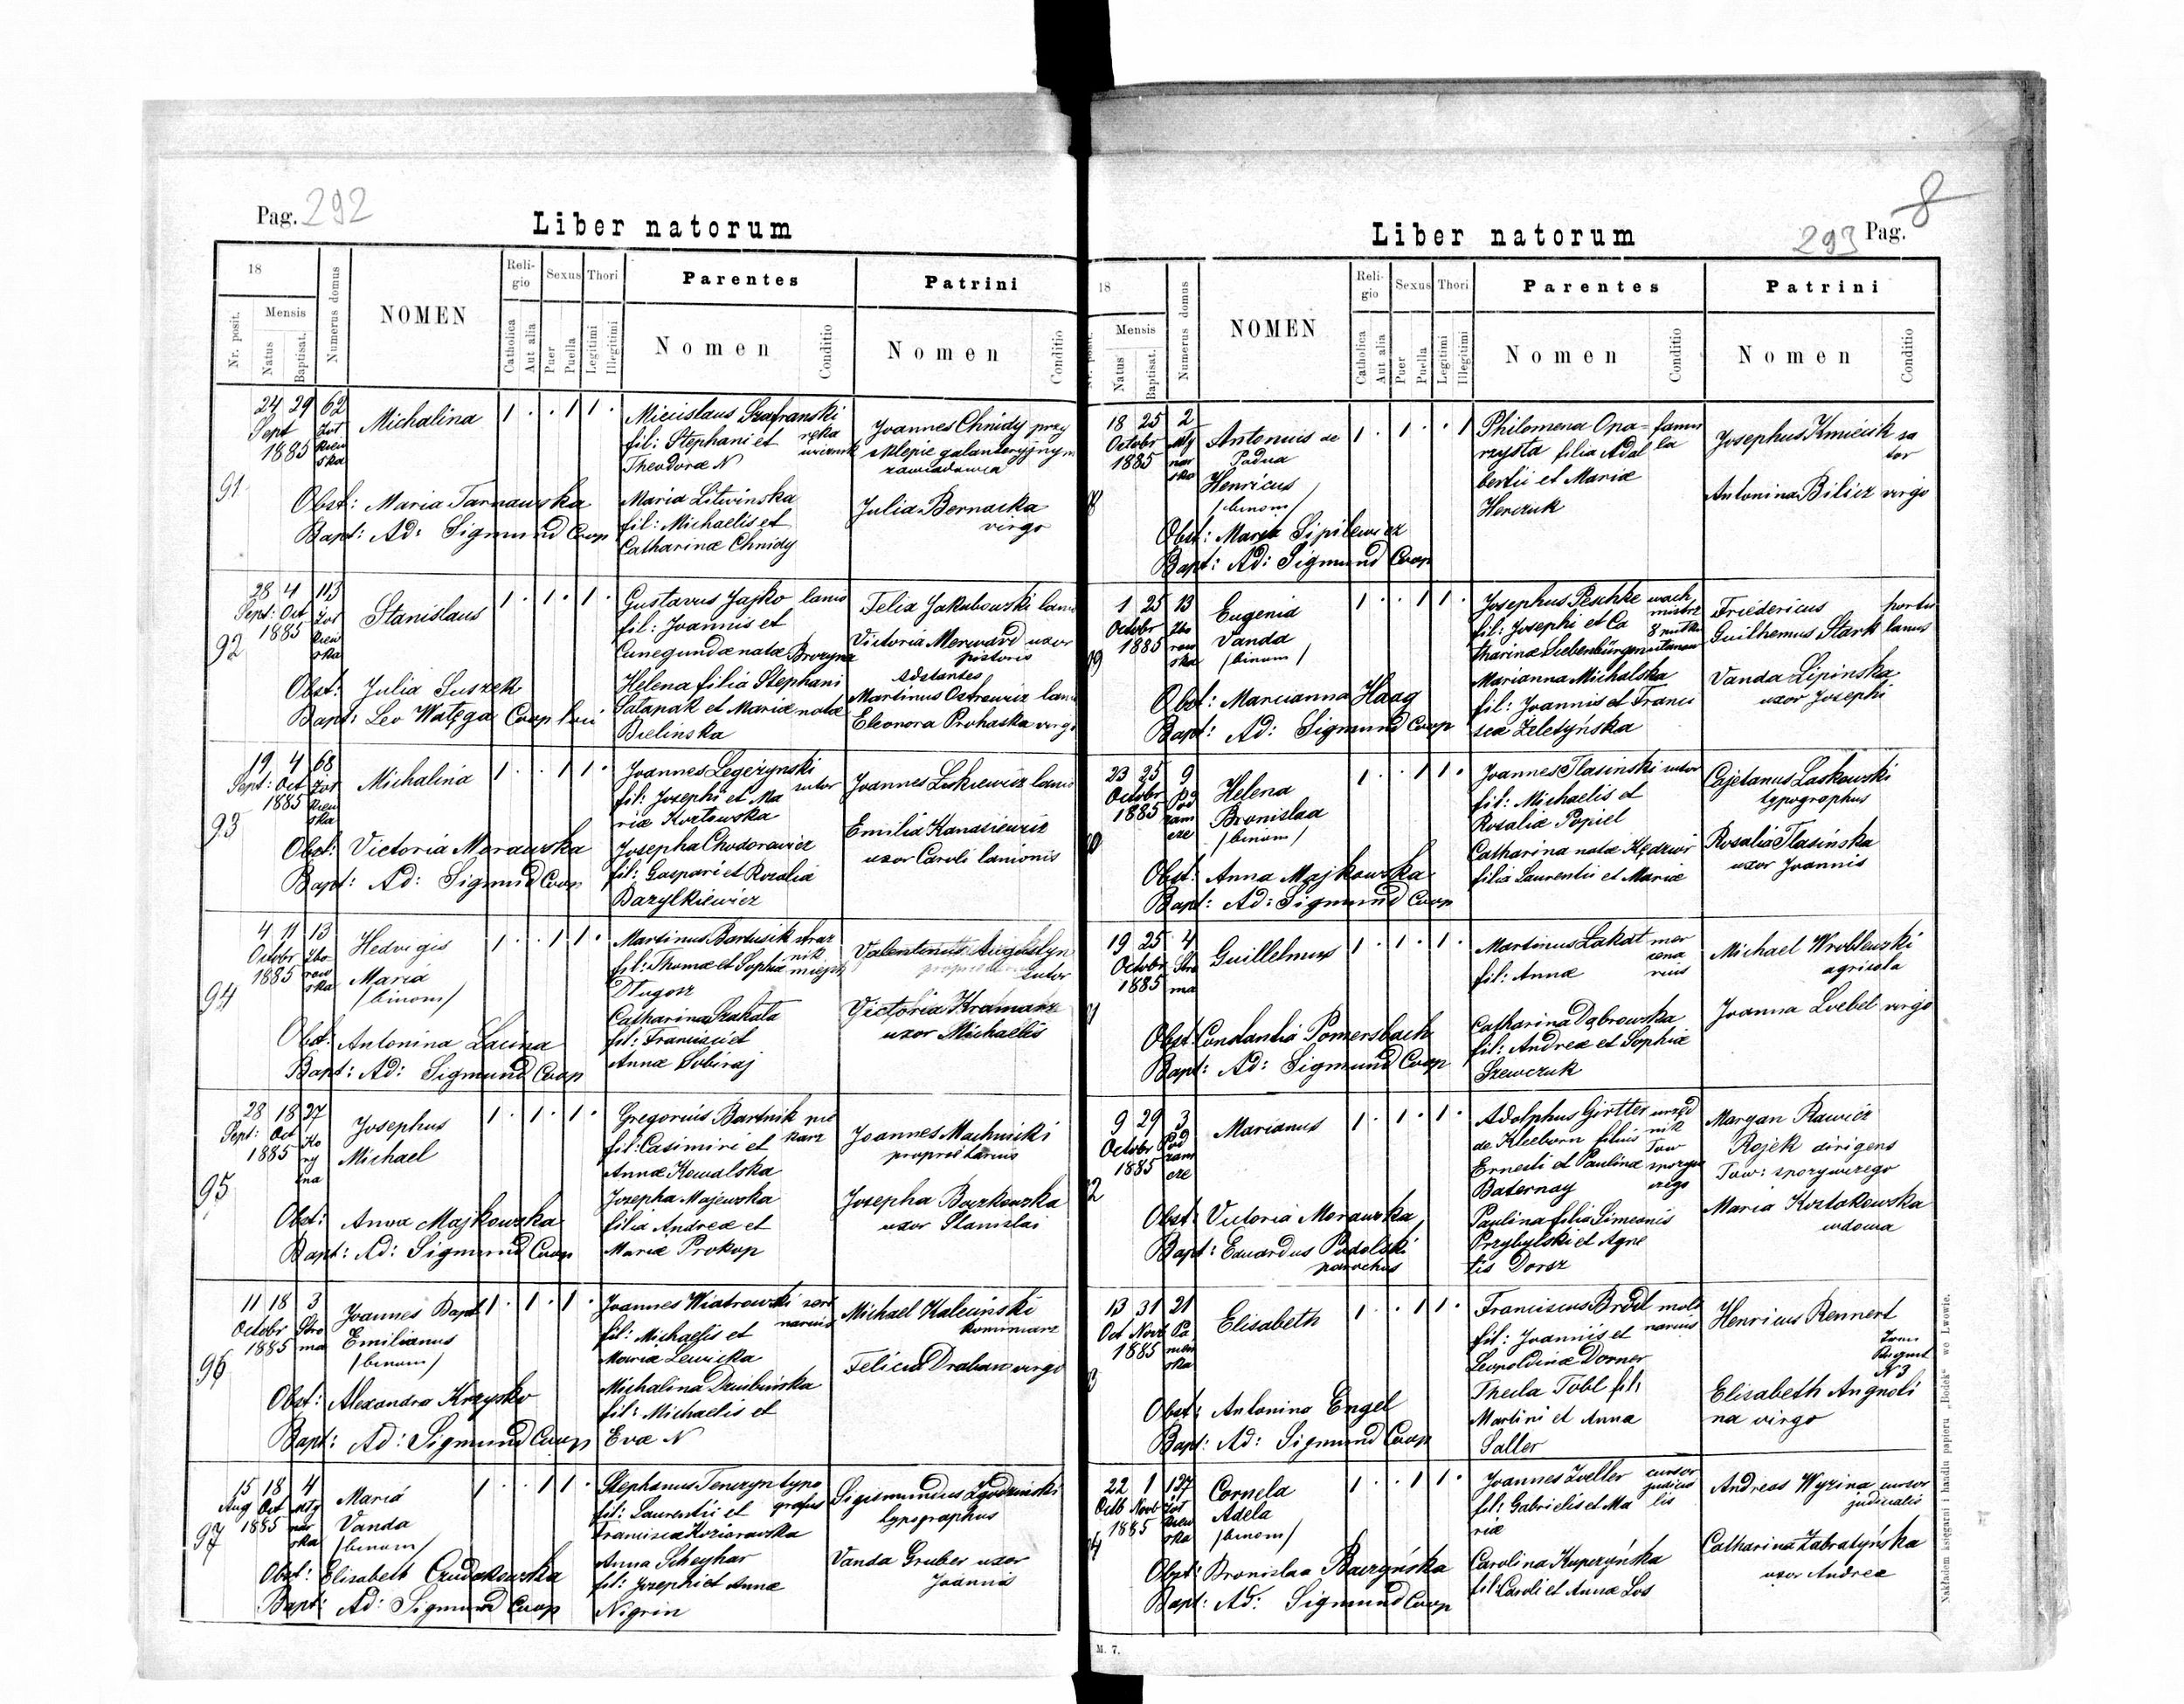 Pag. 292
Liber natorum
18
Nr. posit.
Mensis
Natus
Baptisat.
Numerus domus
NOMEN
Religio
Catholica
Aut alia
Sexus
Puer
Puella
Thori
Legitimi
Illegitimi
Parentes
Nomen
Conditio
Patrini
Nomen
Conditio
91
24 29 62
Sept Żoł
1885 kiew
ska
Michalina
1 . . 1 1 .
Obst: Maria Tarnawska
Bapt: Ad: Sigmund Coop
Miecislaus Szafranski
fil: Stephani et
Theodoræ N
Maria Litwinska
fil: Michaelis et
Catharinæ Chnidy
Joannes Chnidy przy
sklepie galanteryjnym
zawiadowca
Julia Bernacka
virgo
92
28 4 113
Sept: Oct Żoł
1885 kiew
ska
Stanislaus
1 . 1 . 1 .
Obst: Julia Suszek
Bapt: Leo Watęga Coop
Gustavus Jajko lanio
fil: Joannis et
Cunegundæ natæ Brozyna
Helena filia Stephani
Satapak et Mariæ natæ
Bielinska
Felix Jakubowski
Victoria Merward uxor
pistoris
Adstantes
Martinus Ostrowicz
Eleonora Prohaska
93
19 4 68
Sept: Oct Żoł
1885 kiew
ska
Michalina
1 . . 1 1 .
Obst: Victoria Morawska
Bapt: Ad: Sigmund Coop
Joannes Legeżynski
fil: Josephi et Ma sutor
riæ Kozłowska
Josepha Chodorowicz
fil: Gaspari et Rozalia
Bazylkiewicz
Joannes Lukiewicz
Emilia Kanasiewicz
uxor Caroli lanionis
94
4 11 13
Octobr Zbo
1885 row
ska
Hedvigis
Maria
/binom/
1 . . 1 1 .
Obst: Antonina Lacina
Bapt: Ad: Sigmund Coop
Martinus Bartusik straż
fil: Thomæ et Sophiæ nik
Długosz miejsk
Catharina Szakata
fil: Francisci et
Annæ Sobiraj
Valentinus Augustyn
sutor
Victoria Kramarz
uxor Michaelis
95
28 18 27
Sept: Oct Ko
1885 ry
tna
Josephus
Michael
1 . 1 . 1 .
Obst: Anna Majkowska
Bapt: Ad: Sigmund Coop
Gregorius Bartnik pie
fil: Casimiri et karz
Annæ Kowalska
Josepha Majewska
filia Andreæ et
Mariæ Prokop
Joannes Machnicki
proprietarius
Josepha Boczkowska
uxor Stanislai
96
11 18 3
Octobr Stro
1885 ma
Joannes Bapt
Emilianus
/binom/
1 . 1 . 1 .
Obst: Alexandra Krzysko
Bapt: Ad: Sigmund Coop
Joannes Wiatrowski
fil: Michaelis et
Mariæ Lewicka
Michalina Dziubinska
fil: Michaelis et
Evæ N
Michael Kalecinski
kominiarz
Felicia Draban virgo
97
15 18 4
Aug Oct Mły
1885 nar
ska
Maria
Vanda
/binom/
1 . . 1 1 .
Obst: Elisabeth Czudakowska
Bapt: Ad: Sigmund Coop
Stephanus Tenczyn typo
fil: Laurentii et grafus
Francisca Koziarowska
Anna Scheyhar
fil: Josephi et Annæ
Nigrin
Sigismundus Zgodzinski
typographus
Vanda Gruber uxor
Joannis
Liber natorum
293 Pag. 8
18
Nr. posit.
Mensis
Natus
Baptisat.
Numerus domus
NOMEN
Religio
Catholica
Aut alia
Sexus
Puer
Puella
Thori
Legitimi
Illegitimi
Parentes
Nomen
Conditio
Patrini
Nomen
Conditio
8
18 25 2
Octobr Mły
1885 nar
ska
Antonius de
Padua
Henricus
/binom/
1 . 1 . . 1
Obst: Maria Sipilewicz
Bapt: Ad: Sigmund Coop
Philomena Opa= famu
rzysta filia Adal la
bertii et Mariæ
Henczuk
Josephus Kmiecik sa
tor
Antonina Bilicz virgo
9
1 25 13
Octobr Zbo
1885 row
ska
Eugenia
Vanda
/binom/
1 . . 1 1 .
Obst: Marcianna Haag
Bapt: Ad: Sigmund Coop
Josephus Peschke wach
fil: Josephi et Ca mistrz
tharinæ Siebenbürger
Marianna Michalska
fil: Joannis et Franci
scæ Zeletyńska
Friedericus
Guilhemus Stark
Vanda Lipinska
uxor Josephi
0
23 25 9
Octobr Pod
1885 zam
cze
Helena
Bronislaa
/binom/
1 . . 1 1 .
Obst: Anna Majkowska
Bapt: Ad: Sigmund Coop
Joannes Tlasinski sutor
fil: Michaelis et
Rosaliæ Popiel
Catharina natæ Kędzior
filia Laurentii et Mariæ
Cajetanus Laskowski
typographus
Rosalia Tlasińska
uxor Joannis
1
19 25 4
Octobr Stro
1885 ma
Guillelmus
1 . 1 . 1 .
Obst: Constantia Pomersbach
Bapt: Ad: Sigmund Coop
Martinus Łakat mer
fil: Annæ cena
rius
Catharina Dąbrowska
fil: Andreæ et Sophiæ
Szewczuk
Michael Wroblewski
agricola
Joanna Loebel virgo
2
9 29 3
Octobr Pod
1885 zam
cze
Marianus
1 . 1 . 1 .
Obst: Victoria Morawska
Bapt: Eduardus Podolski
parochus
Adolphus Girtler urzęd
de Kleeborn filius nik
Ernesti et Paulinæ Tow
Baternay spożyw
czego
Paulina filia Simeonis
Przybylski et Agne
tis Dorsz
Maryan Rawicz
Rojek dirigens
Tow: spożywczego
Maria Koztakowska
wdowa
3
13 31 21
Oct Novb Pa
1885 nień
ska
Elisabeth
1 . . 1 1 .
Obst: Antonina Engel
Bapt: Ad: Sigmund Coop
Franciscus Brödl
fil: Joannis et
Leopoldinæ Dorner
Thecla Tobl fil:
Martini et Anna
Saller
Henricus Rennert
N 3
Elisabeth Angnoli
na virgo
4
22 1 127
Octb Novb Żoł
1885 kiew
ska
Cornela
Adela
/binom/
1 . . 1 1 .
Obst: Bronislaa Baczyńska
Bapt: Ad: Sigmund Coop
Joannes Zveller cursor
fil: Gabrielis et Ma judicia
riæ lis
Carolina Kupczyńska
fil: Caroli et Annæ Los
Andreas Wyzina cursor
judicialis
Catharina Zabratyńska
uxor Andreæ
M. 7.
Nakładem księgarni i handlu papieru „Bodek" we Lwowie.